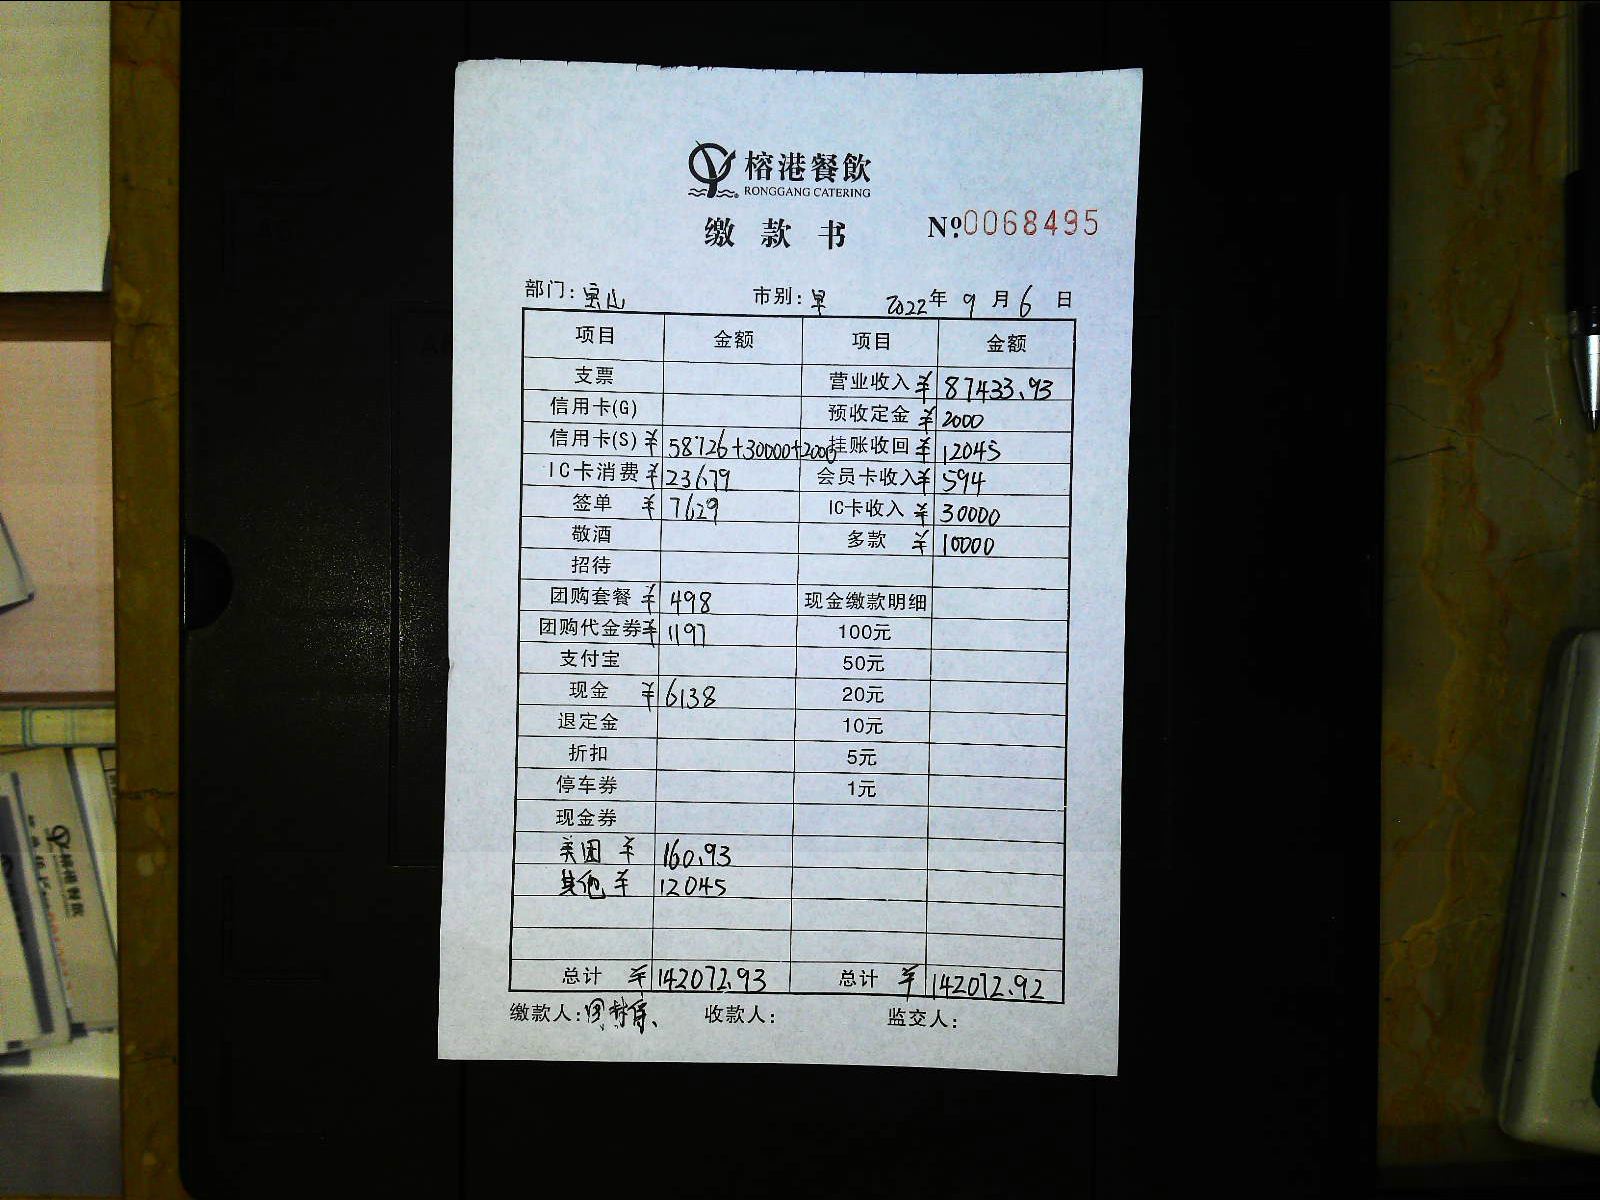 榕港餐飲
RONGGANG CATERING
缴款书 Nº 0068495
部门: 宝山 市别: 早 2022年 9月 6日
项目 金额 项目 金额
支票 营业收入 ¥ 87433.93
信用卡(G) 预收定金 ¥ 2000
信用卡(S) ¥ 58726+30000+2000 挂账收回 ¥ 12045
IC卡消费 ¥ 23679 会员卡收入 ¥ 594
签单 ¥ 7629 IC卡收入 ¥ 30000
敬酒 多款 ¥ 10000
招待
团购套餐 ¥ 498 现金缴款明细
团购代金券 ¥ 1197 100元
支付宝 50元
现金 ¥ 6138 20元
退定金 10元
折扣 5元
停车券 1元
现金券
美团 ¥ 160.93
其他 ¥ 12045
总计 ¥ 142072.93 总计 ¥ 142072.92
缴款人: 收款人: 监交人: